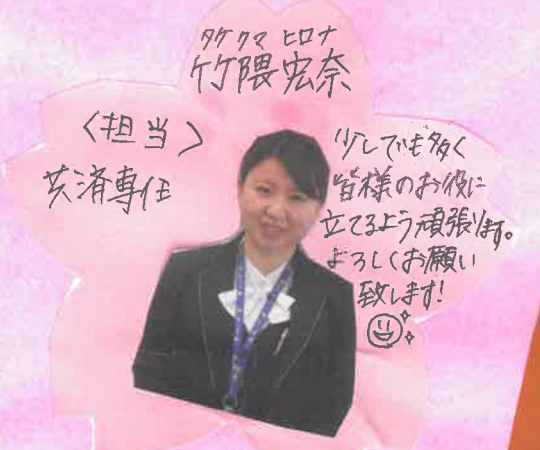 タケクマ ヒロナ
竹隈宏奈
〈担当〉
共済専任
少しでも多く
皆様のお役に
立てるよう頑張ります。
よろしくお願い
致します!